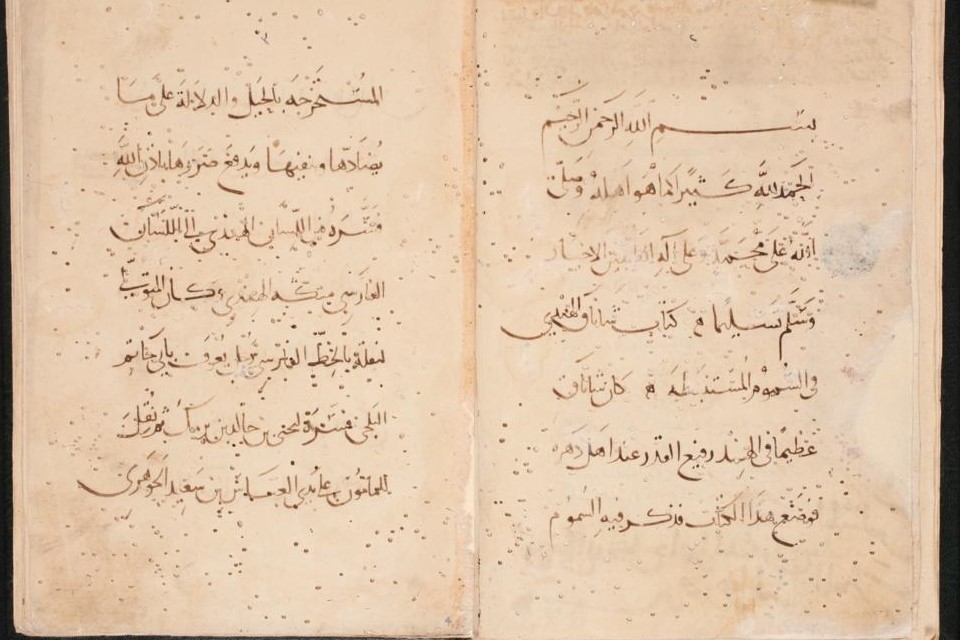 ٢
بسم الله الرحمن الرحيم
الحمد لله كثيرا كما هو اهله وصلى
الله على محمد وعلى آله الطيبين الاخيار
وسلم تسليما كتاب شاناق الهندي
فى السموم المستنبطه كان شاناق
عظيما فى الهند رفيع القدر عند اهل دهره
فوضع هذا الكتاب فذكر فيه السموم
٣
المستخرجه بالحيل والدلالة على ما
يضادها وينفيها ويدفع ضررها باذن الله
فسره من اللسان الهندي الى اللسان
الفارسي منكه الهندي وكان المتولي
لنقله بالخط الفارسي رجل يعرف بابي حاتم
البلخي فسره ليحيى بن خالد بن برمك ثم نقل
للمامون على يدي العباس بن سعيد الجوهري